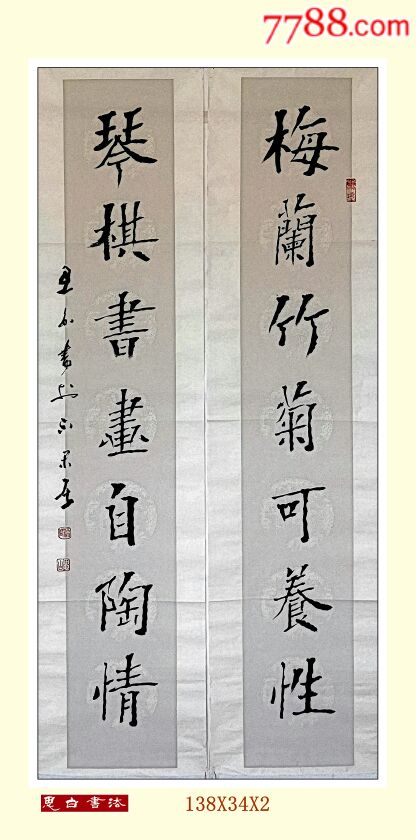 7788.com
梅蘭竹菊可養性
琴棋書畫自陶情
思白書法
138X34X2